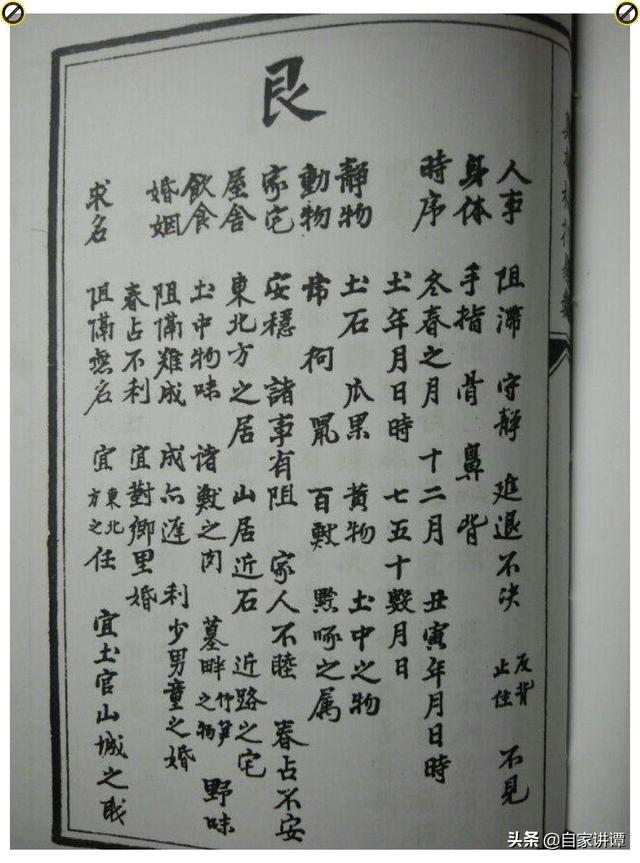 艮
人事　阻滯　守静　進退不决　反背　止住　不見
身体　手指　骨　鼻　背
時序　冬春之月　十二月　丑寅年月日時
土年月日時　七五十數月日
静物　土石　瓜果　黄物　土中之物
動物　狗　鼠　百獸　黔喙之属
家宅　安穩　諸事有阻　家人不睦　春占不安
屋舎　東北方之居　山居近石　近路之宅
飲食　土中物味　諸獸之肉　墓畔竹笋之物　野味
婚姻　阻隔難成　成亦遲　利少男童之婚
春占不利　宜對鄉里婚
求名　阻隔無名　宜東北方之任　宜土官山城之职
头条 @自家讲谭